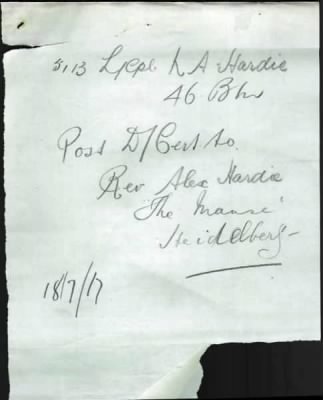 3,13 L/Cpl N A Hardie
46 Btn
Post D/Cert to.
Rev Alex Hardie
The Manse
Heidelberg -
18/7/17